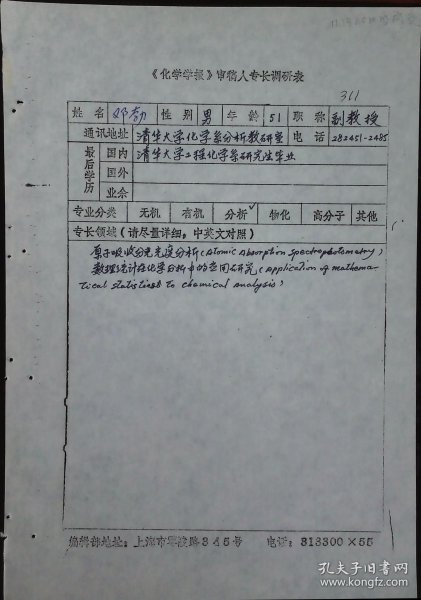 《化学学报》审稿人专长调研表
311
姓名 邓勃 性别 男 年龄 51 职称 副教授
通讯地址 清华大学化学系分析教研室 电话 282451-2485
最后学历 国内 清华大学工程化学系研究生毕业
国外
业余
专业分类 无机 有机 分析✓ 物化 高分子 其他
专长领域(请尽量详细,中英文对照)
原子吸收分光光度分析(Atomic Absorption Spectrophotometry)
数理统计在化学分析中的应用研究(Application of mathema-
tical statistics to chemical analysis)
编辑部地址:上海市零陵路345号 电话:313300×55
孔夫子旧书网
www.kongfz.com